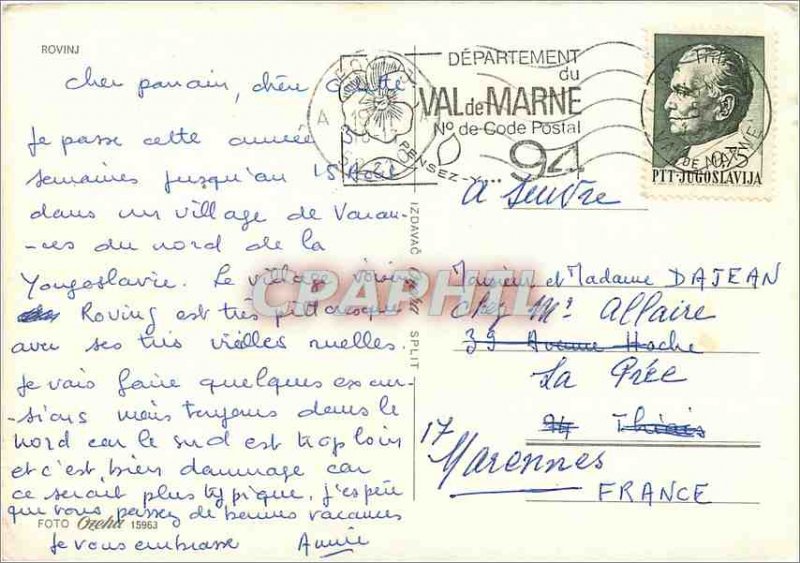 ROVINJ
cher parrain, chère
Je passe cette année 3
semaines jusqu'au 15 Août
dans un village de Vacan-
-ces du nord de la
Yougoslavie. Le village voisin
Roving est très pittoresque
avec ses très vieilles ruelles.
Je vais faire quelques excur-
-sions mais toujours dans le
nord car le sud est trop loin
et c'est bien dommage car
ce serait plus typique. J'espère
que vous passez de bonnes vacances
FOTO Ozeha 15963
Je vous embrasse Annie
IZDAVAČ SPLIT
DÉPARTEMENT
du
VAL de MARNE
N° de Code Postal
94
PENSEZ-Y...
VAL DE MARNE
0,75
PTT-JUGOSLAVIJA
A suivre
Monsieur et Madame DAJEAN
chez Mr Allaire
39 Avenue Hoche
La Prée
94 Thiais
17
Marennes
FRANCE
CPAPHIL